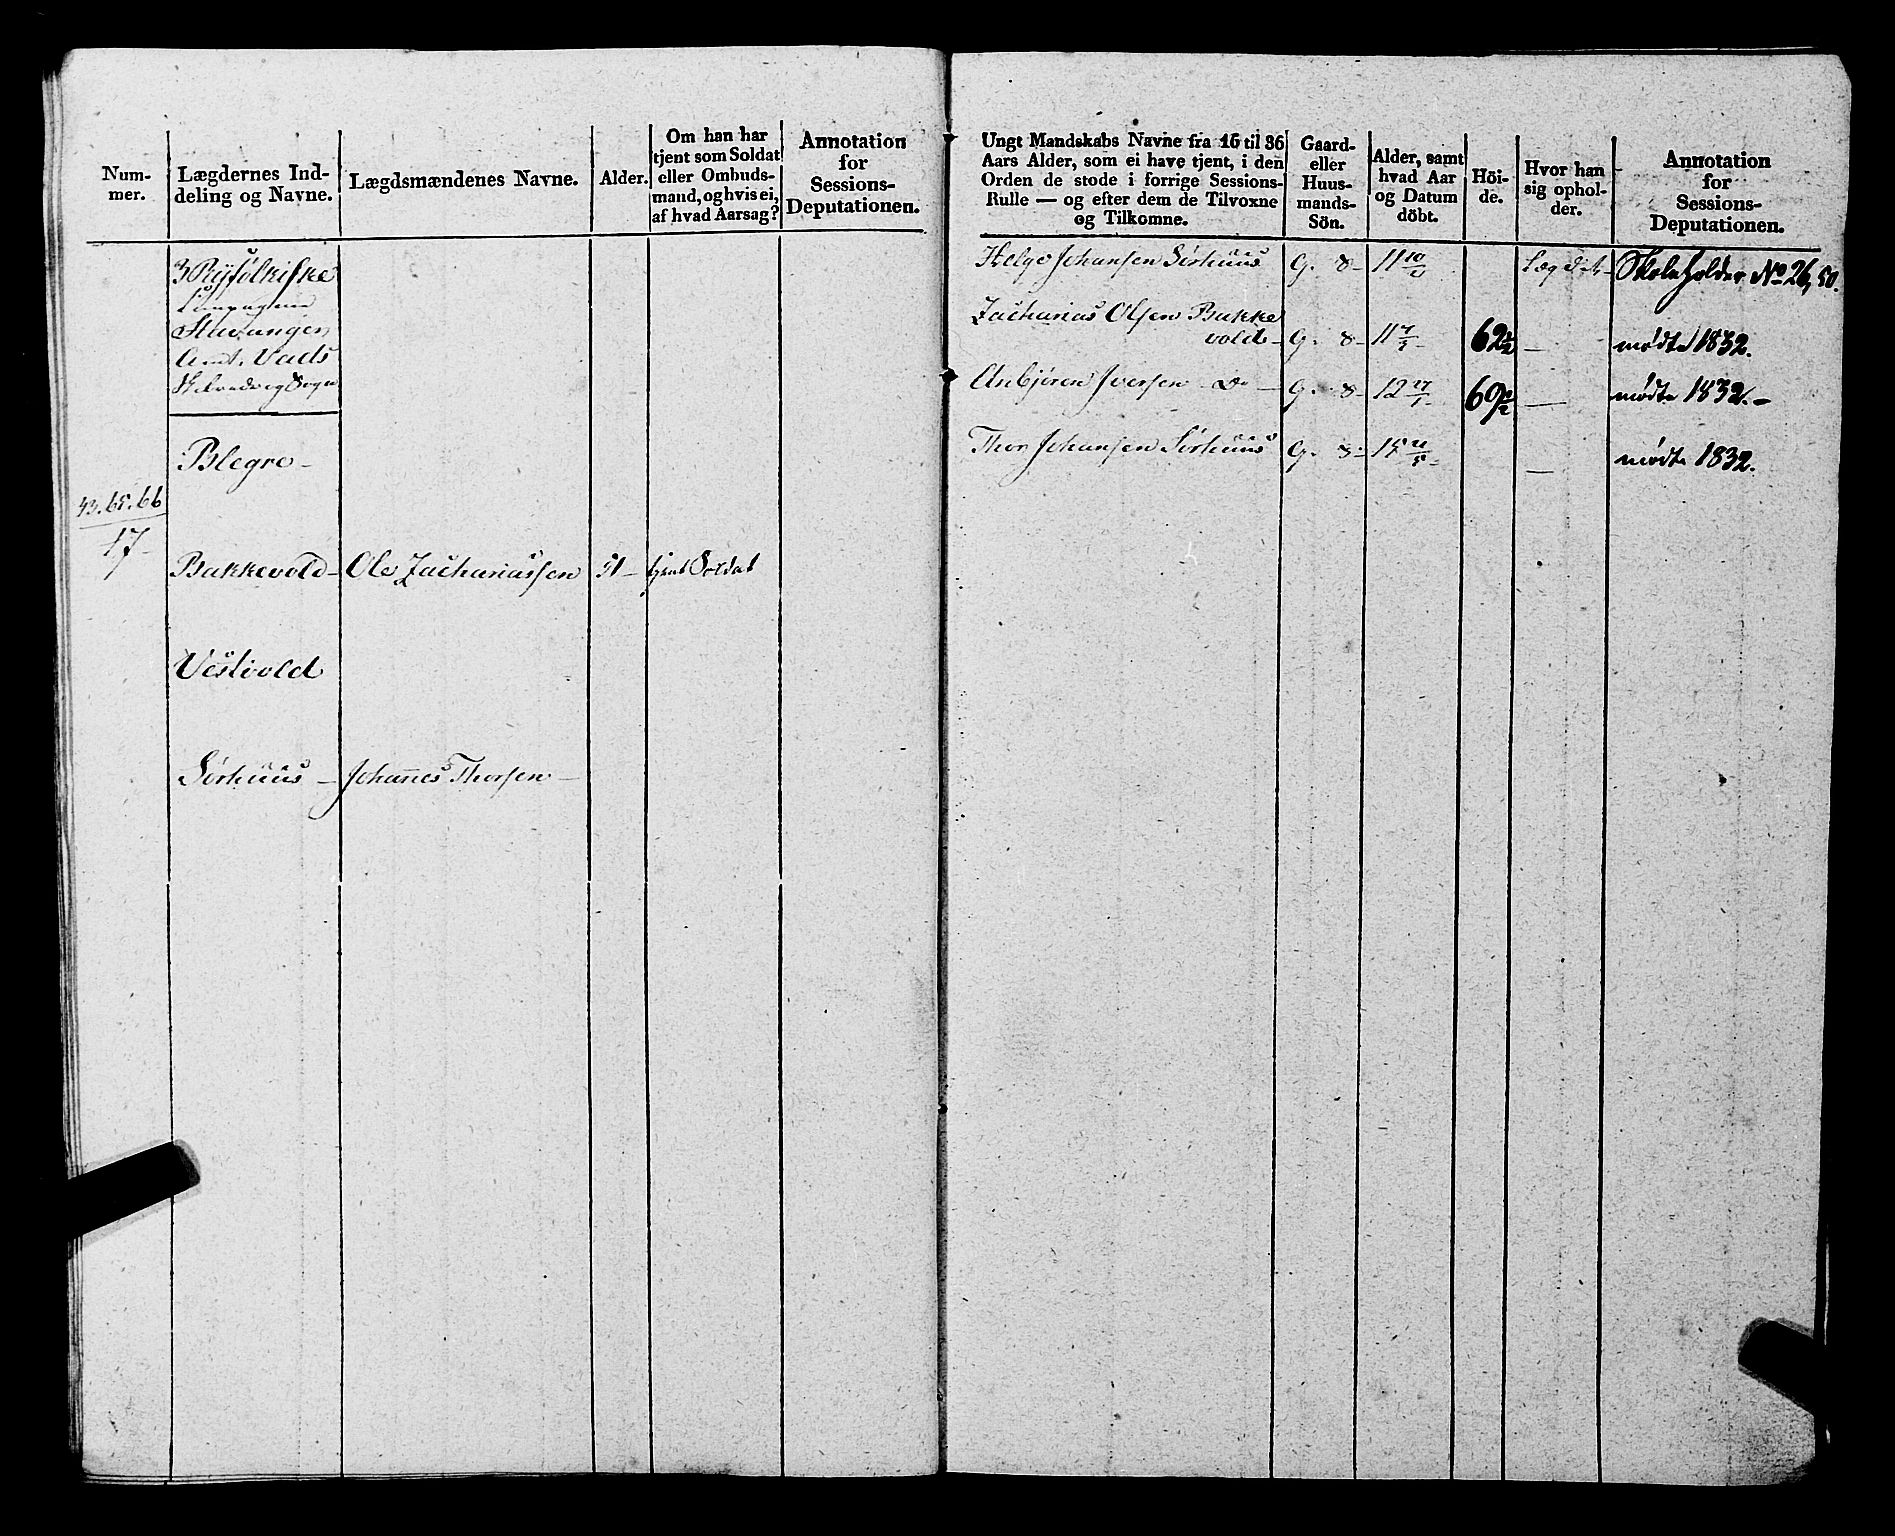 Num-
mer.
Lægdernes Ind-
deling og Navne.
Lægdsmændenes Navne.
Alder.
Om han har
tjent som Soldat
eller Ombuds-
mand, og hvis ei,
af hvad Aarsag?
Annotation
for
Sessions-
Deputationen.
3 Ryfølkiske
Compagnie
Stavanger
Amt. Vads
Skredsvig Sogn
Blegre -
43. 65. 66
17 -
Bakkevold - Ole Zachariassen 51 - tjent Soldat
Vestvold
Sørhuus - Johannes Thorsen -
Ungt Mandskabs Navne fra 16 til 36
Aars Alder, som ei have tjent, i den
Orden de stode i forrige Sessions-
Rulle — og efter dem de Tilvoxne
og Tilkomne.
Gaard-
eller
Huus-
mands-
Sön.
Alder, samt
hvad Aar
og Datum
döbt.
Höi-
de.
Hvor han
sig ophol-
der.
Annotation
for
Sessions-
Deputationen.
Helge Johansen Sørhuus G. S- 11 Lægdet- Skoleholder No 26, 50.
Zacharias Olsen Bakke
vold- G. S- 11 7/3 - 62 1/2 — mødte 1832.
Anbjøren Iversen - Do - G. S- 12 27/1 - 60 1/2 — mødte 1832. -
Thor Johansen Sørhuus G. S- 15 21/5 - — mødte 1832.